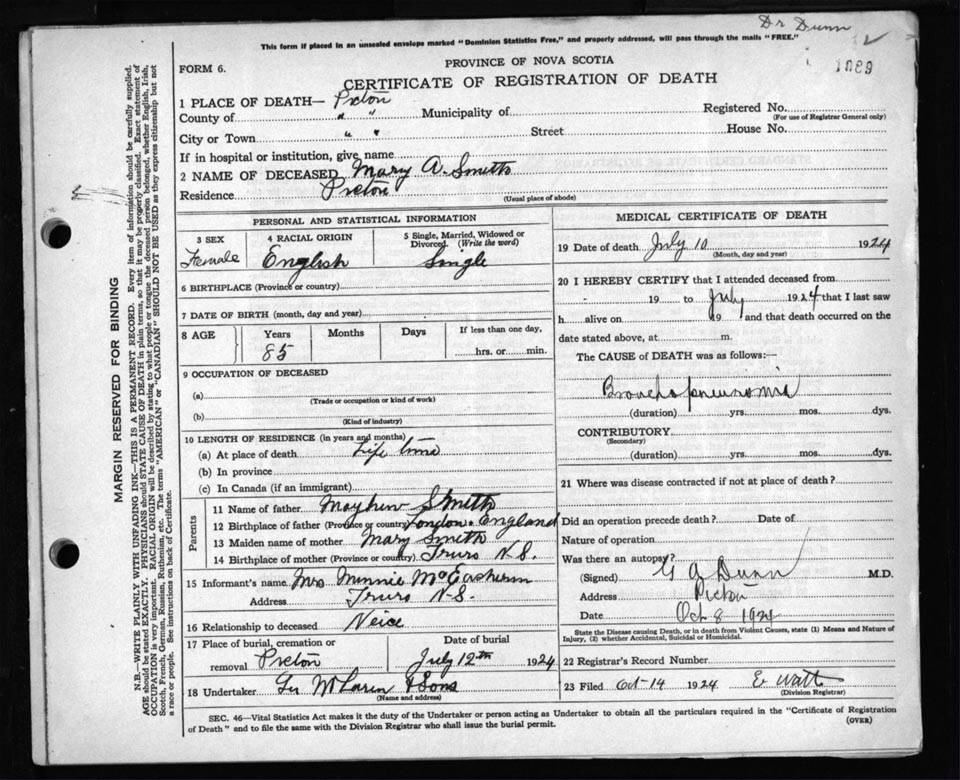 Dr Dunn
This form if placed in an unsealed envelope marked "Dominion Statistics Free," and properly addressed, will pass through the mails "FREE."
1089
PROVINCE OF NOVA SCOTIA
FORM 6.
CERTIFICATE OF REGISTRATION OF DEATH
1 PLACE OF DEATH— Pictou
County of " " Municipality of Registered No.
(For use of Registrar General only)
City or Town " " Street House No.
If in hospital or institution, give name
2 NAME OF DECEASED Mary A. Smith
Residence Pictou
(Usual place of abode)
PERSONAL AND STATISTICAL INFORMATION
3 SEX 4 RACIAL ORIGIN 5 Single, Married, Widowed or Divorced. (Write the word)
Female English Single
6 BIRTHPLACE (Province or country)
7 DATE OF BIRTH (month, day and year)
8 AGE Years Months Days If less than one day,
85 hrs. or min.
9 OCCUPATION OF DECEASED
(a)
(Trade or occupation or kind of work)
(b)
(Kind of industry)
10 LENGTH OF RESIDENCE (in years and months)
(a) At place of death Life time
(b) In province
(c) In Canada (if an immigrant)
Parents
11 Name of father Mayhew Smith
12 Birthplace of father (Province or country) London. England
13 Maiden name of mother Mary Smith
14 Birthplace of mother (Province or country) Truro N.S.
15 Informant's name Mrs Minnie
Address Truro N.S.
16 Relationship to deceased Neice
17 Place of burial, cremation or Date of burial
removal Pictou July 12th 1924
18 Undertaker Geo McLaren & Sons
(Name and address)
MEDICAL CERTIFICATE OF DEATH
19 Date of death July 10 1924
(Month, day and year)
20 I HEREBY CERTIFY that I attended deceased from
19 to July 1924 that I last saw
h alive on 19 and that death occurred on the
date stated above, at m.
The CAUSE of DEATH was as follows:—
Broncho pneumonia
(duration) yrs. mos. dys.
CONTRIBUTORY
(Secondary)
(duration) yrs. mos. dys.
21 Where was disease contracted if not at place of death?
Did an operation precede death? Date of
Nature of operation
Was there an autopsy?
(Signed) G A Dunn M.D.
Address Pictou
Date Oct 8 1924
State the Disease causing Death, or in death from Violent Causes, state (1) Means and Nature of
Injury, (2) whether Accidental, Suicidal or Homicidal.
22 Registrar's Record Number
23 Filed Oct-14 1924 E Watt
(Division Registrar)
SEC. 46—Vital Statistics Act makes it the duty of the Undertaker or person acting as Undertaker to obtain all the particulars required in the "Certificate of Registration
of Death" and to file the same with the Division Registrar who shall issue the burial permit. (OVER)
MARGIN RESERVED FOR BINDING
N.B.—WRITE PLAINLY WITH UNFADING INK—THIS IS A PERMANENT RECORD. Every item of information should be carefully supplied.
AGE should be stated EXACTLY. PHYSICIANS should STATE CAUSE OF DEATH in plain terms, so that it may be properly classified. Exact statement of
OCCUPATION is very important. RACIAL ORIGIN will be described by stating to what people or tongue the deceased person belonged, whether English, Irish,
Scotch, French, German, Russian, Ruthenian, etc. The terms "AMERICAN" or "CANADIAN" SHOULD NOT BE USED as they express citizenship but not
a race or people. See instructions on back of Certificate.